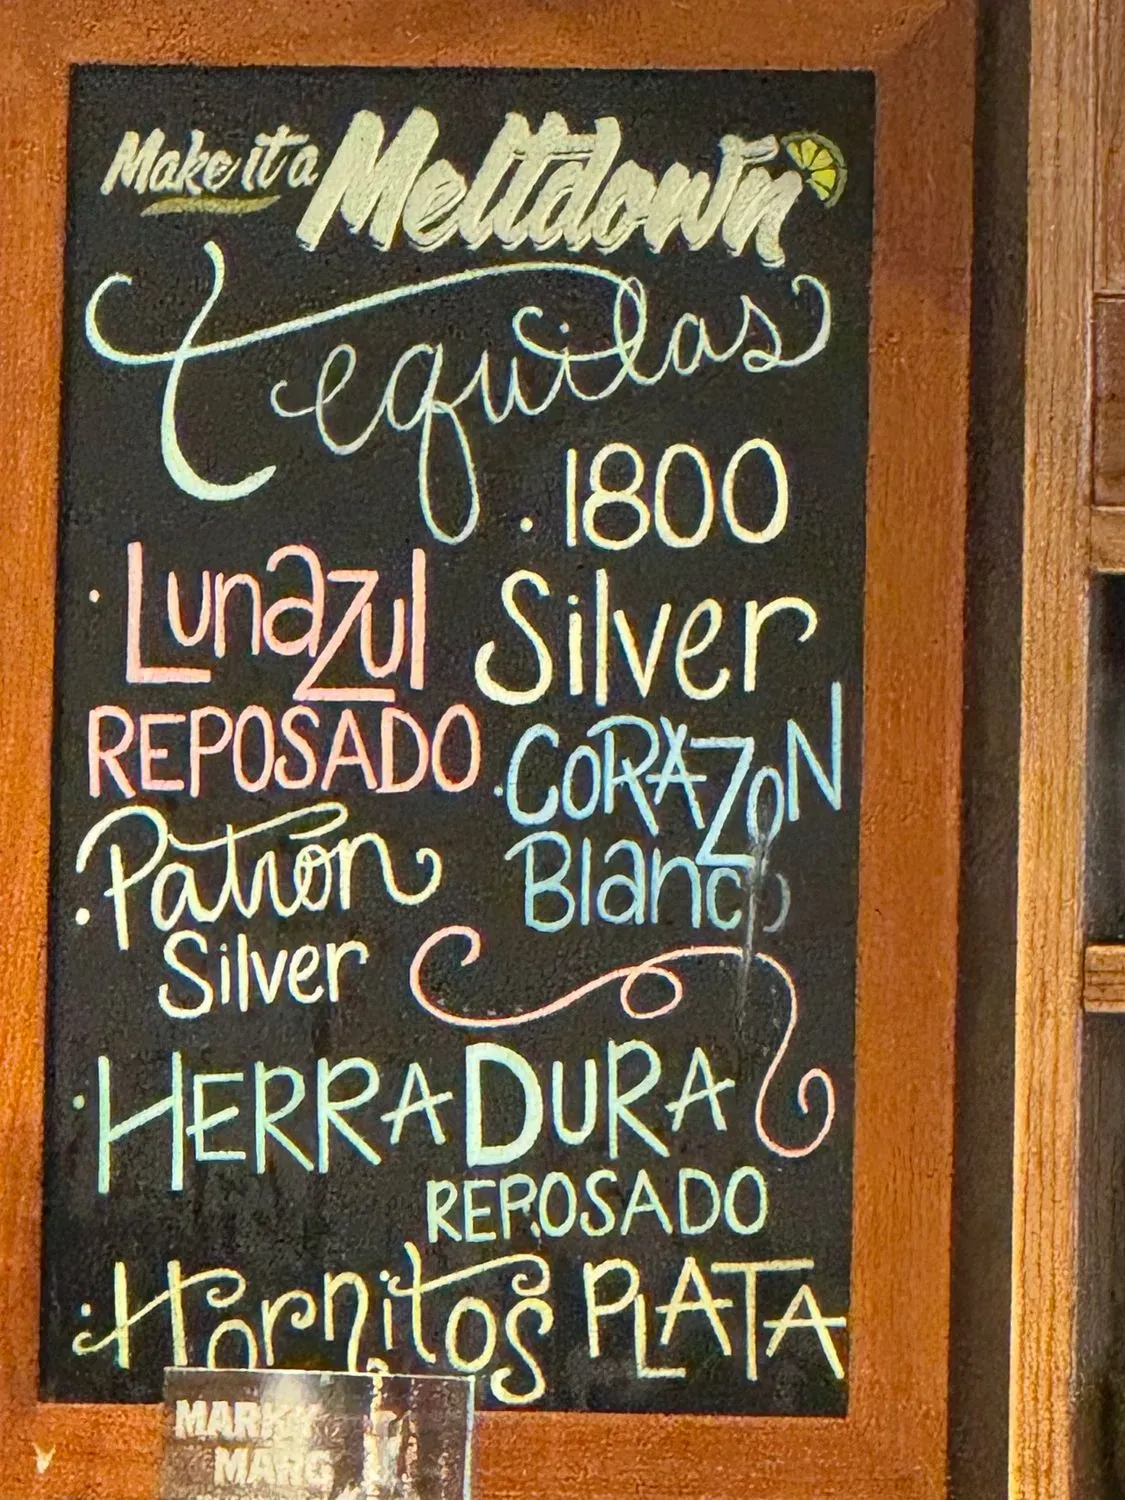 Make it a Meltdown
Tequilas
· 1800
Silver
· Lunazul
REPOSADO
· CORAZON
Blanco
· Patrón
Silver
· HERRADURA
REPOSADO
· Hornitos PLATA
MARKY
MARG